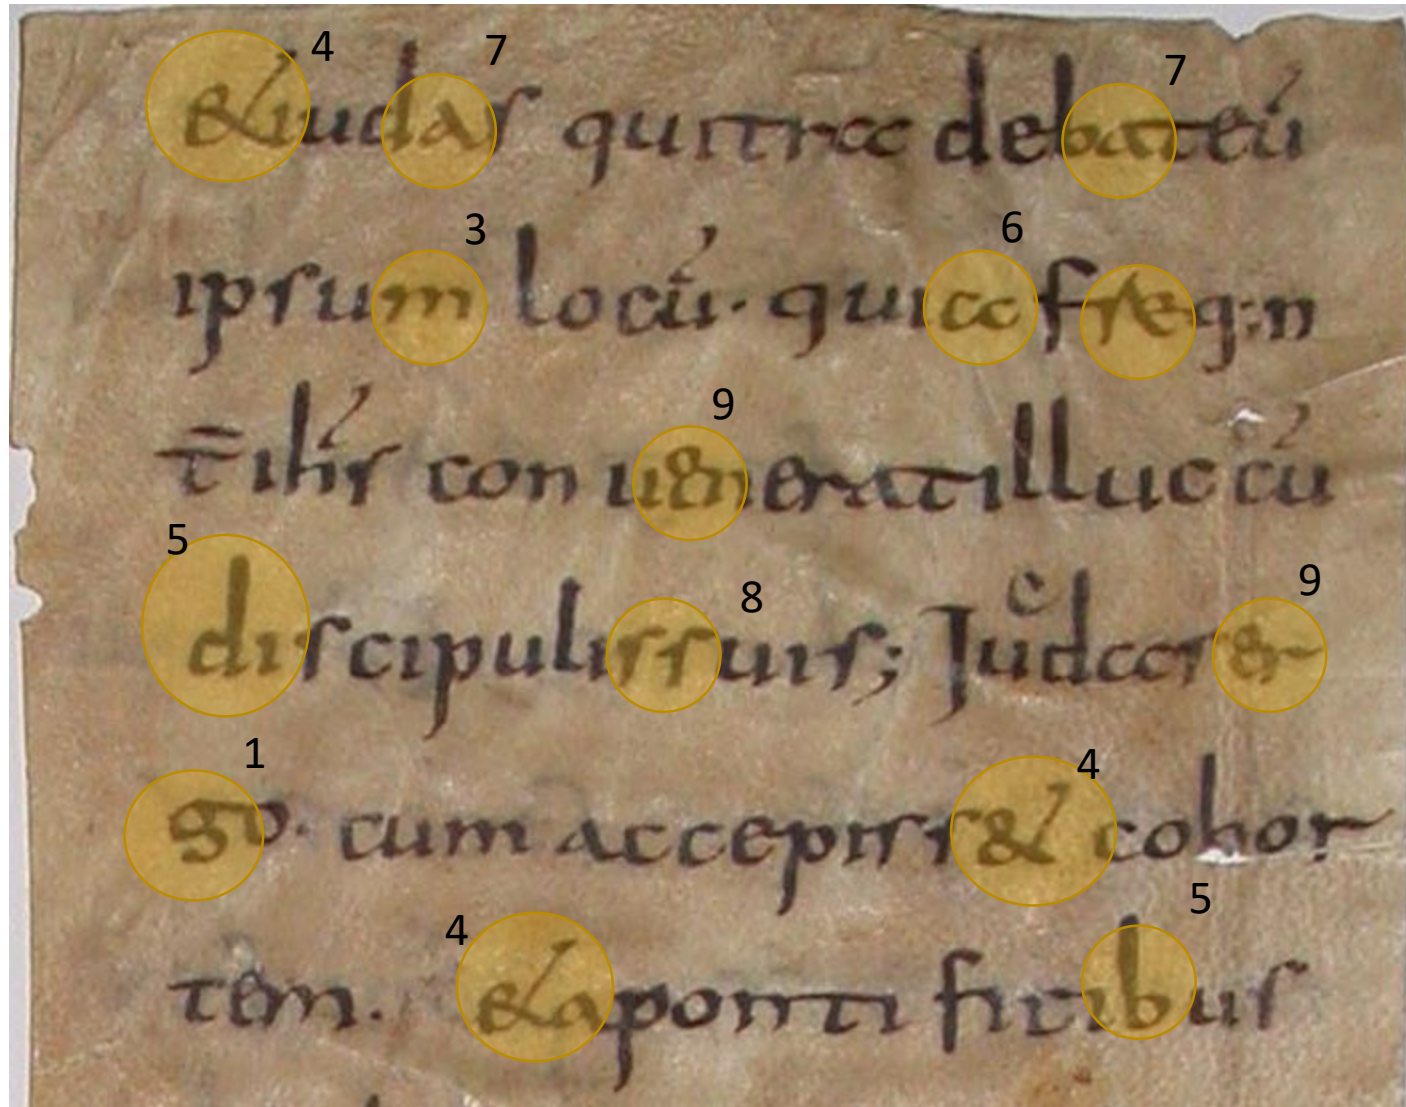 4 7 7
&iudas quitra debateú
3 6
ipsum locú· quia freq:n
9
t̄ ihś con uenerat illuc cú
5 8 9
discipulis suis; Iudas er
1 4
go· cum accepiss& cohor
4 5
tem. &aponti ficibus